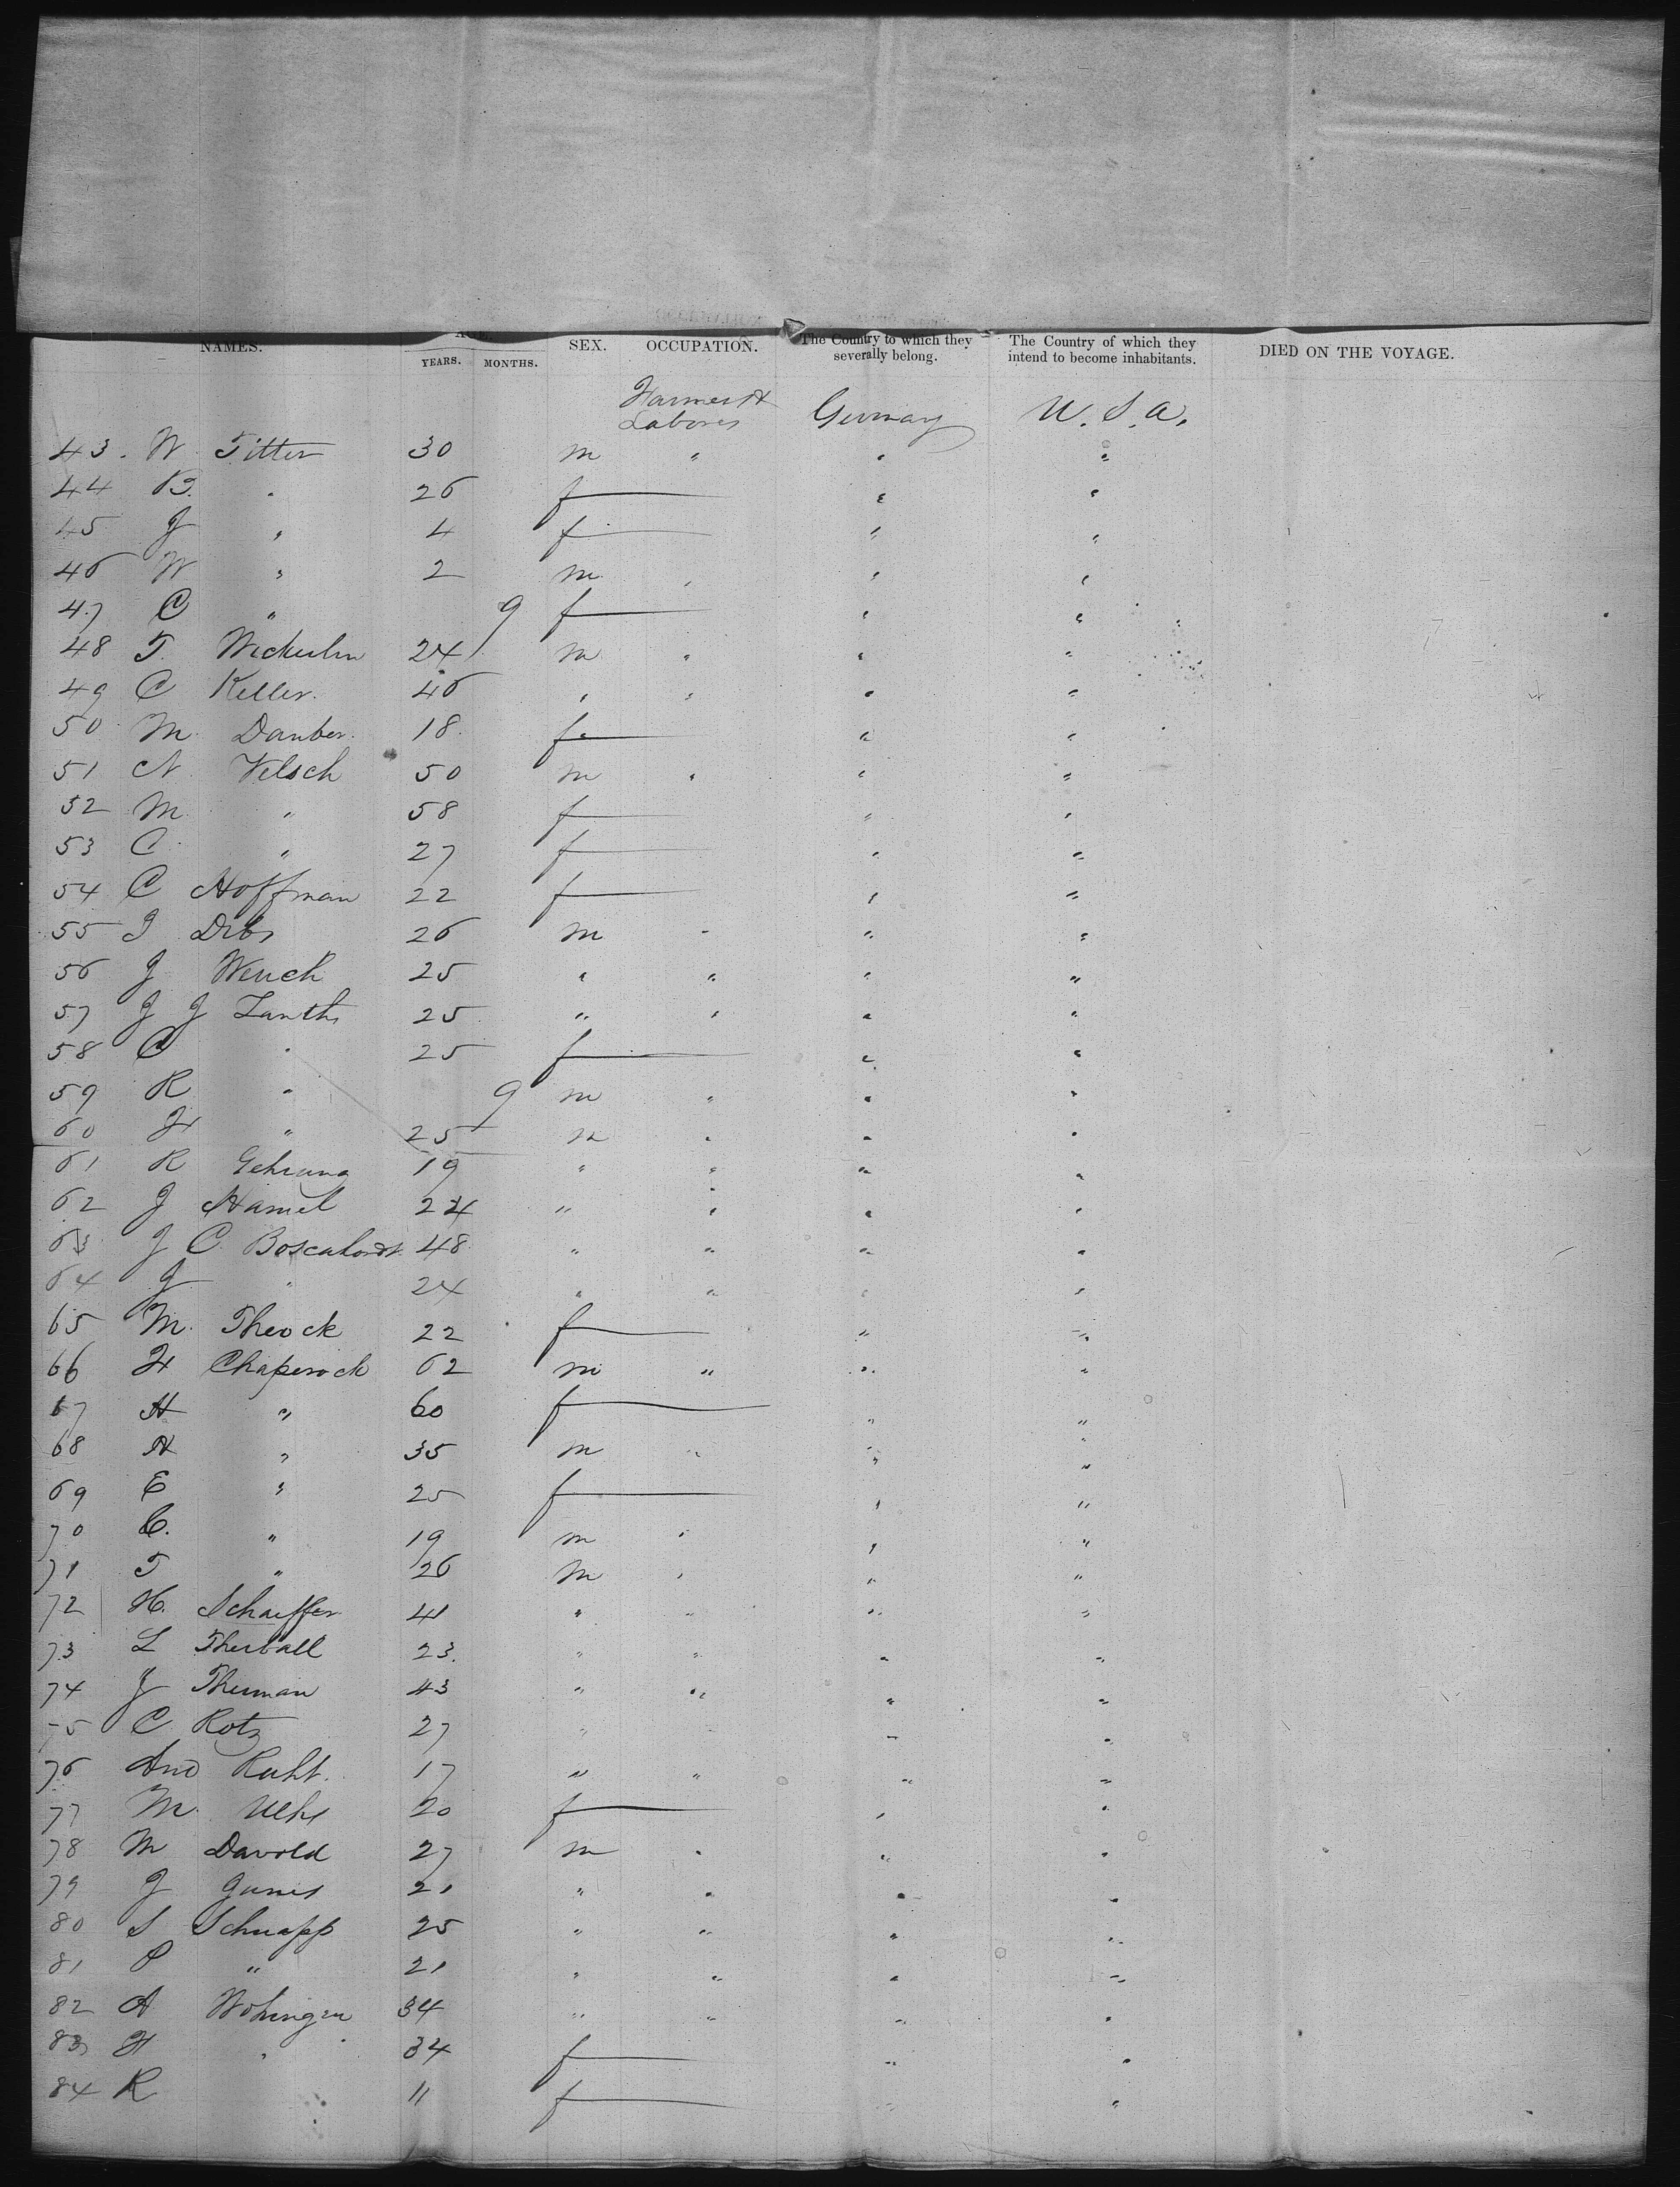 NAMES. AGE. SEX. OCCUPATION. The Country to which they severally belong. The Country of which they intend to become inhabitants. DIED ON THE VOYAGE.
YEARS. MONTHS.
Farmers & Labores Germany U. S. A.
43. W Titter 30 m " " "
44 B. " 26 f " "
45 J " 4 f " "
46 W " 2 m " " "
47 C " 9 f " "
48 T. 24 m " " "
49 C Keller. 46 " " " "
50 M. Dauber. 18 f " "
51 N. Velsch 50 m " " "
52 M. " 58 f " "
53 C. " 27 f " "
54 C Hoffman 22 f " "
55 J Dibs 26 m " " "
56 J Wench 25 " " " "
57 J J Lanth 25 " " " "
58 C " 25 f " "
59 R " 9 m " " "
60 H " 25 m " " "
61 R Gehrung 19 " " " "
62 J Hamel 24 " " " "
63 J C 48 " " " "
64 J " 24 " " " "
65 M. Theock 22 f " "
66 H Chaperock 62 m " " "
67 H " 60 f " "
68 H " 35 m " " "
69 E " 25 f " "
70 C. " 19 m " " "
71 T " 26 m " " "
72 H. Schaeffer 41 " " " "
73 L Therball 23. " " " "
74 J Therman 43 " " " "
75 C Rotz 27 " " "
76 And Ruht. 17 " " " "
77 M. 20 f " "
78 M Davold 27 m " " "
79 J 21 " " " "
80 S Schnapp 25 " " " "
81 P " 21 " " " "
82 A Wohingen 34 " " " "
83 H " 34 f " "
84 R 11 f " "